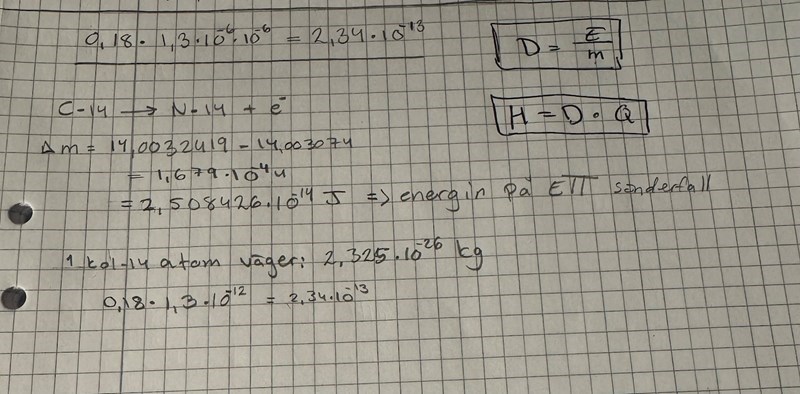 0,18 · 1,3 · 10⁻⁶ · 10⁻⁶ = 2,34 · 10⁻¹³
D = E/m
H = D · Q
C-14 → N-14 + e⁻
Δm = 14,0032419 - 14,003074
= 1,679 · 10⁻⁴ u
= 2,508426 · 10⁻¹⁴ J => energin på ETT sönderfall
1 kol-14 atom väger: 2,325 · 10⁻²⁶ kg
0,18 · 1,3 · 10⁻¹² = 2,34 · 10⁻¹³